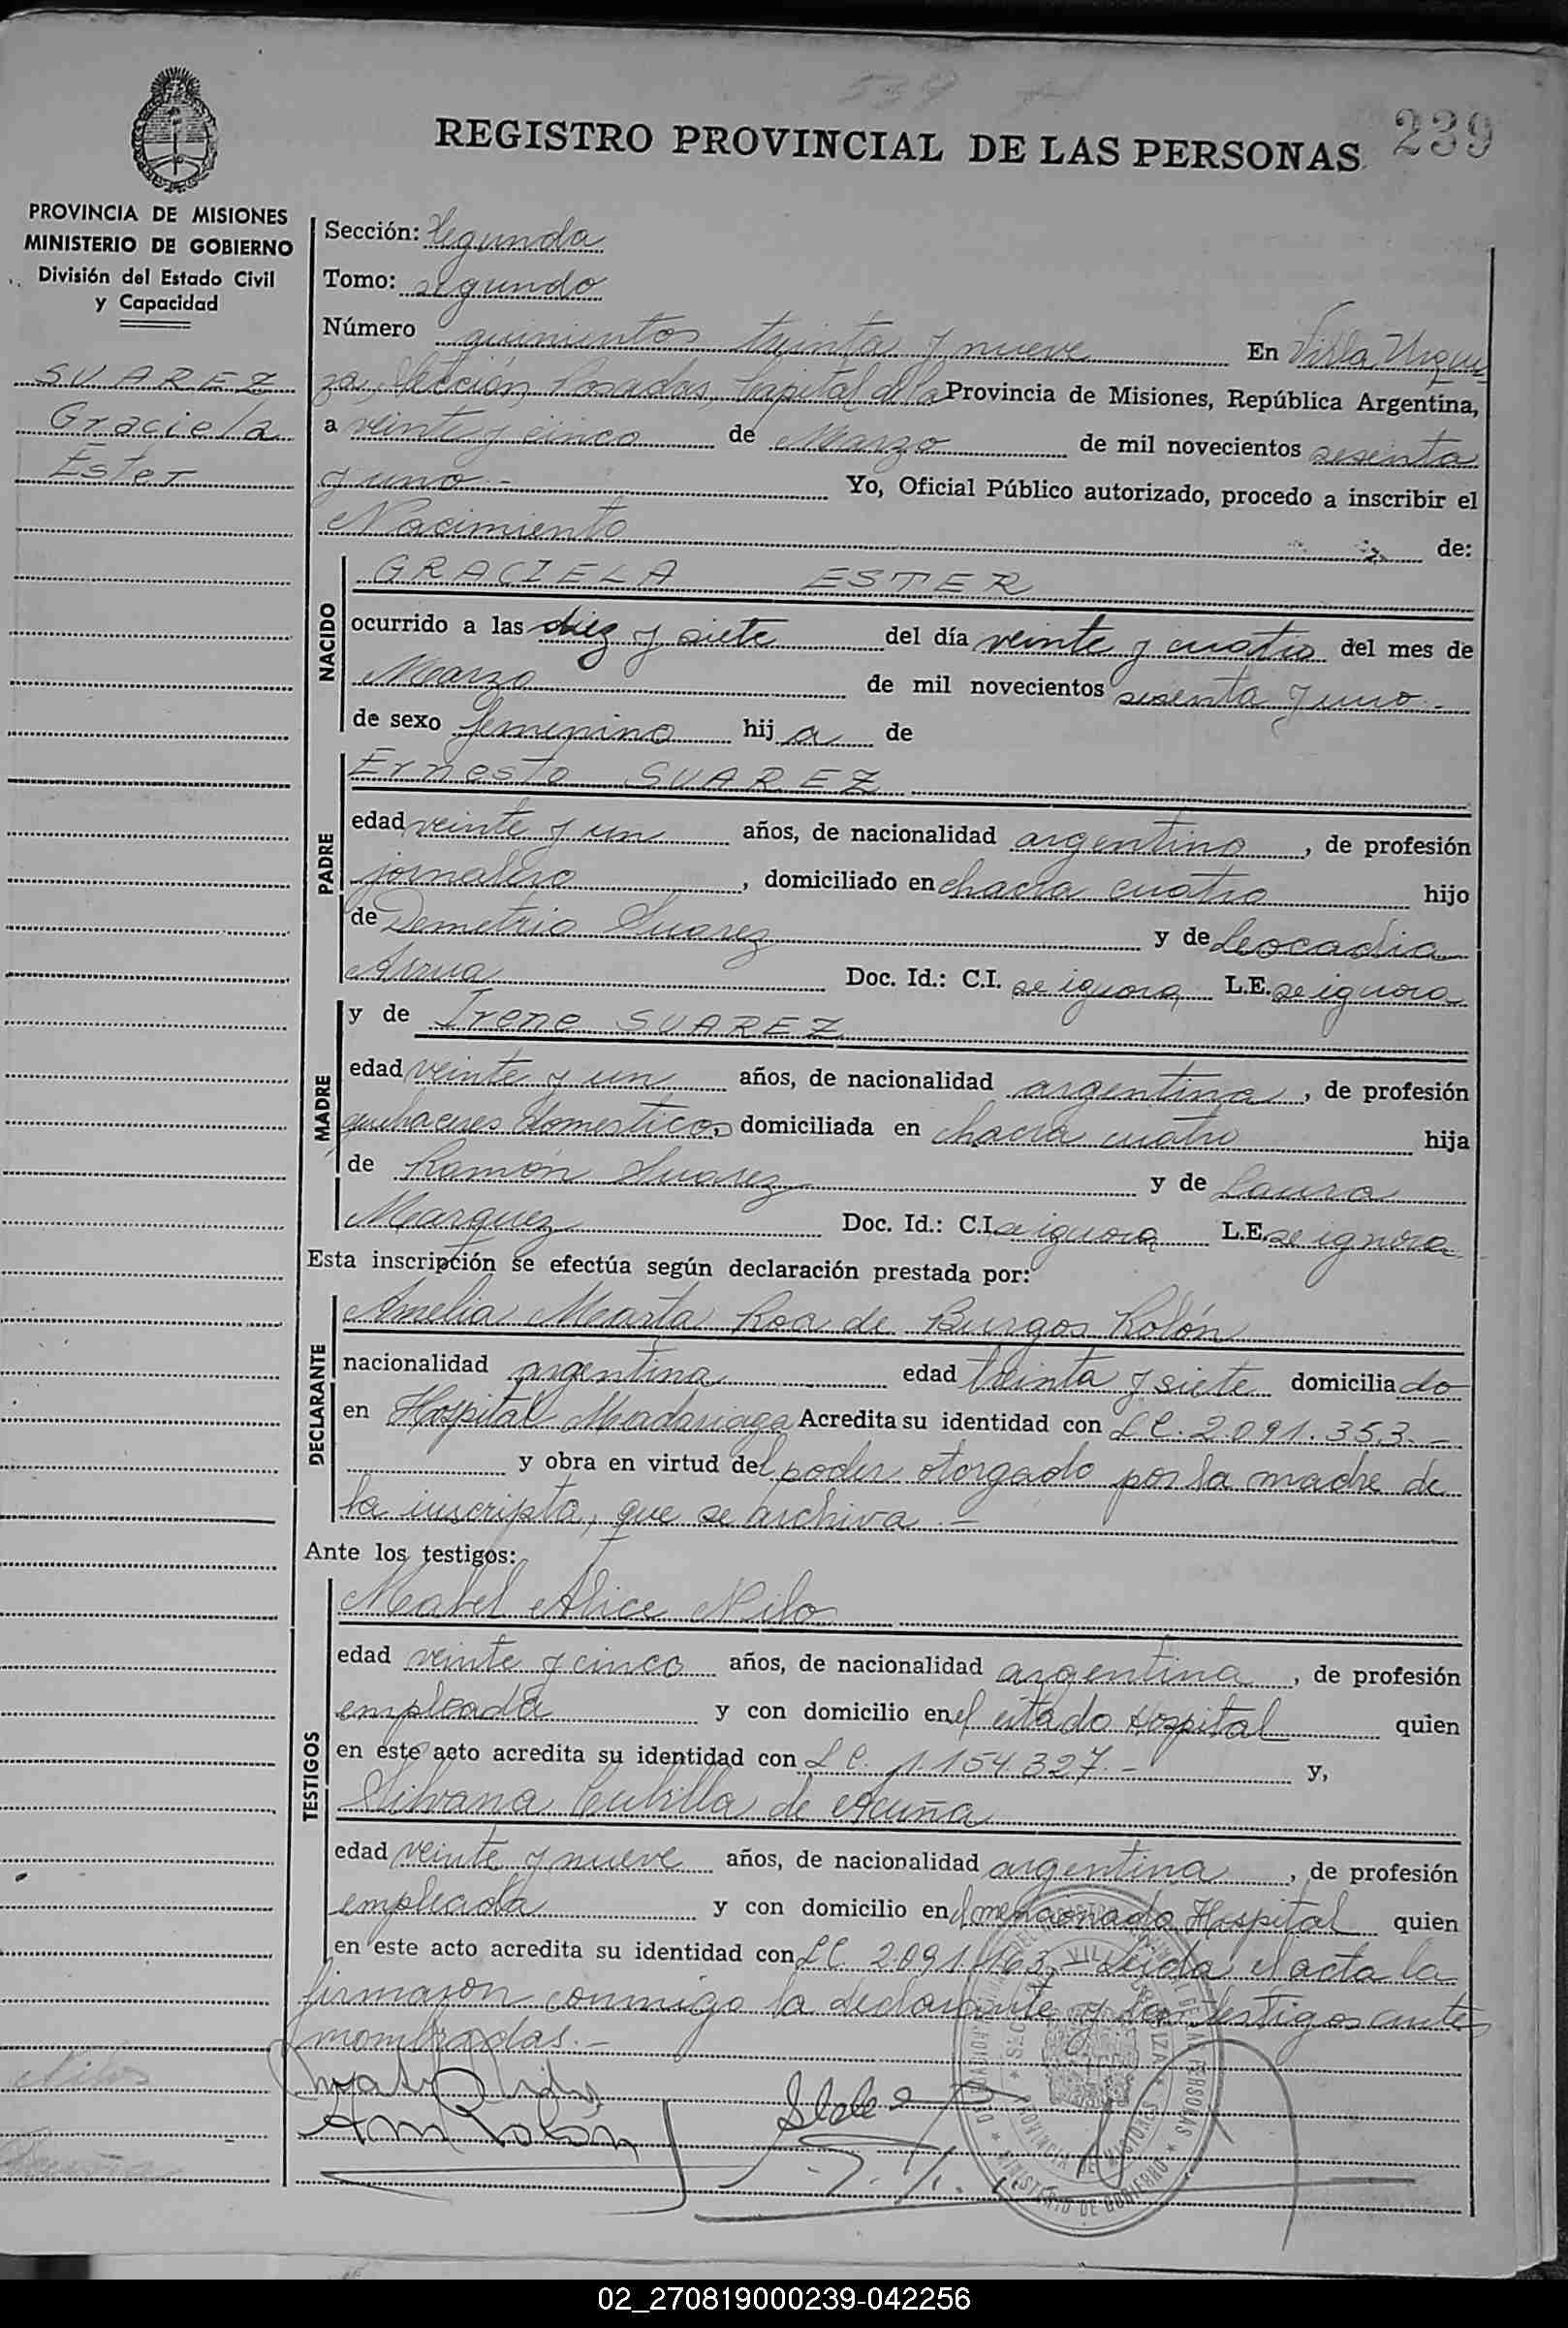 539
239
REGISTRO PROVINCIAL DE LAS PERSONAS
PROVINCIA DE MISIONES
MINISTERIO DE GOBIERNO
División del Estado Civil
y Capacidad
SUAREZ
Graciela
Ester
Sección: Segunda
Tomo: segundo
Número quinientos treinta y nueve En Villa Urqui
za, Sección, Posadas, Capital de la Provincia de Misiones, República Argentina,
a veinte y cinco de Marzo de mil novecientos sesenta
y uno.- Yo, Oficial Público autorizado, procedo a inscribir el
Nacimiento de:
NACIDO
GRACIELA ESTER
ocurrido a las diez y siete del día veinte y cuatro del mes de
Marzo de mil novecientos sesenta y uno.-
de sexo femenino hij a de
PADRE
Ernesto SUAREZ
edad veinte y un años, de nacionalidad argentino, de profesión
jornalero, domiciliado en chacra cuatro hijo
de Demetrio Suarez y de Leocadia
Arrua Doc. Id.: C.I. se ignora L.E. se ignora
MADRE
y de Irene SUAREZ
edad veinte y un años, de nacionalidad argentina, de profesión
quehaceres domesticos domiciliada en chacra cuatro hija
de Ramón Suarez y de Laura
Marquez Doc. Id.: C.I. se ignora L.E. se ignora
Esta inscripción se efectúa según declaración prestada por:
DECLARANTE
Amelia Marta Roa de Burgos Rolón
nacionalidad argentina edad treinta y siete domicilia do
en Hospital Madariaga Acredita su identidad con LC. 2.091.353.-
y obra en virtud del poder otorgado por la madre de
la inscripta, que se archiva.-
Ante los testigos:
TESTIGOS
Mabel Alice Nilo
edad veinte y cinco años, de nacionalidad argentina, de profesión
empleada y con domicilio en el citado Hospital quien
en este acto acredita su identidad con LC. 1.154.327.- y,
Silvana Cubilla de Acuña
edad veinte y nueve años, de nacionalidad argentina, de profesión
empleada y con domicilio en el mencionado Hospital quien
en este acto acredita su identidad con LC. 2.091.163.- Leida el acta la
firmaron conmigo la declarante y los testigos antes
nombradas.-
PROVINCIA DE MISIONES
MINISTERIO DE GOBIERNO
02_270819000239-042256